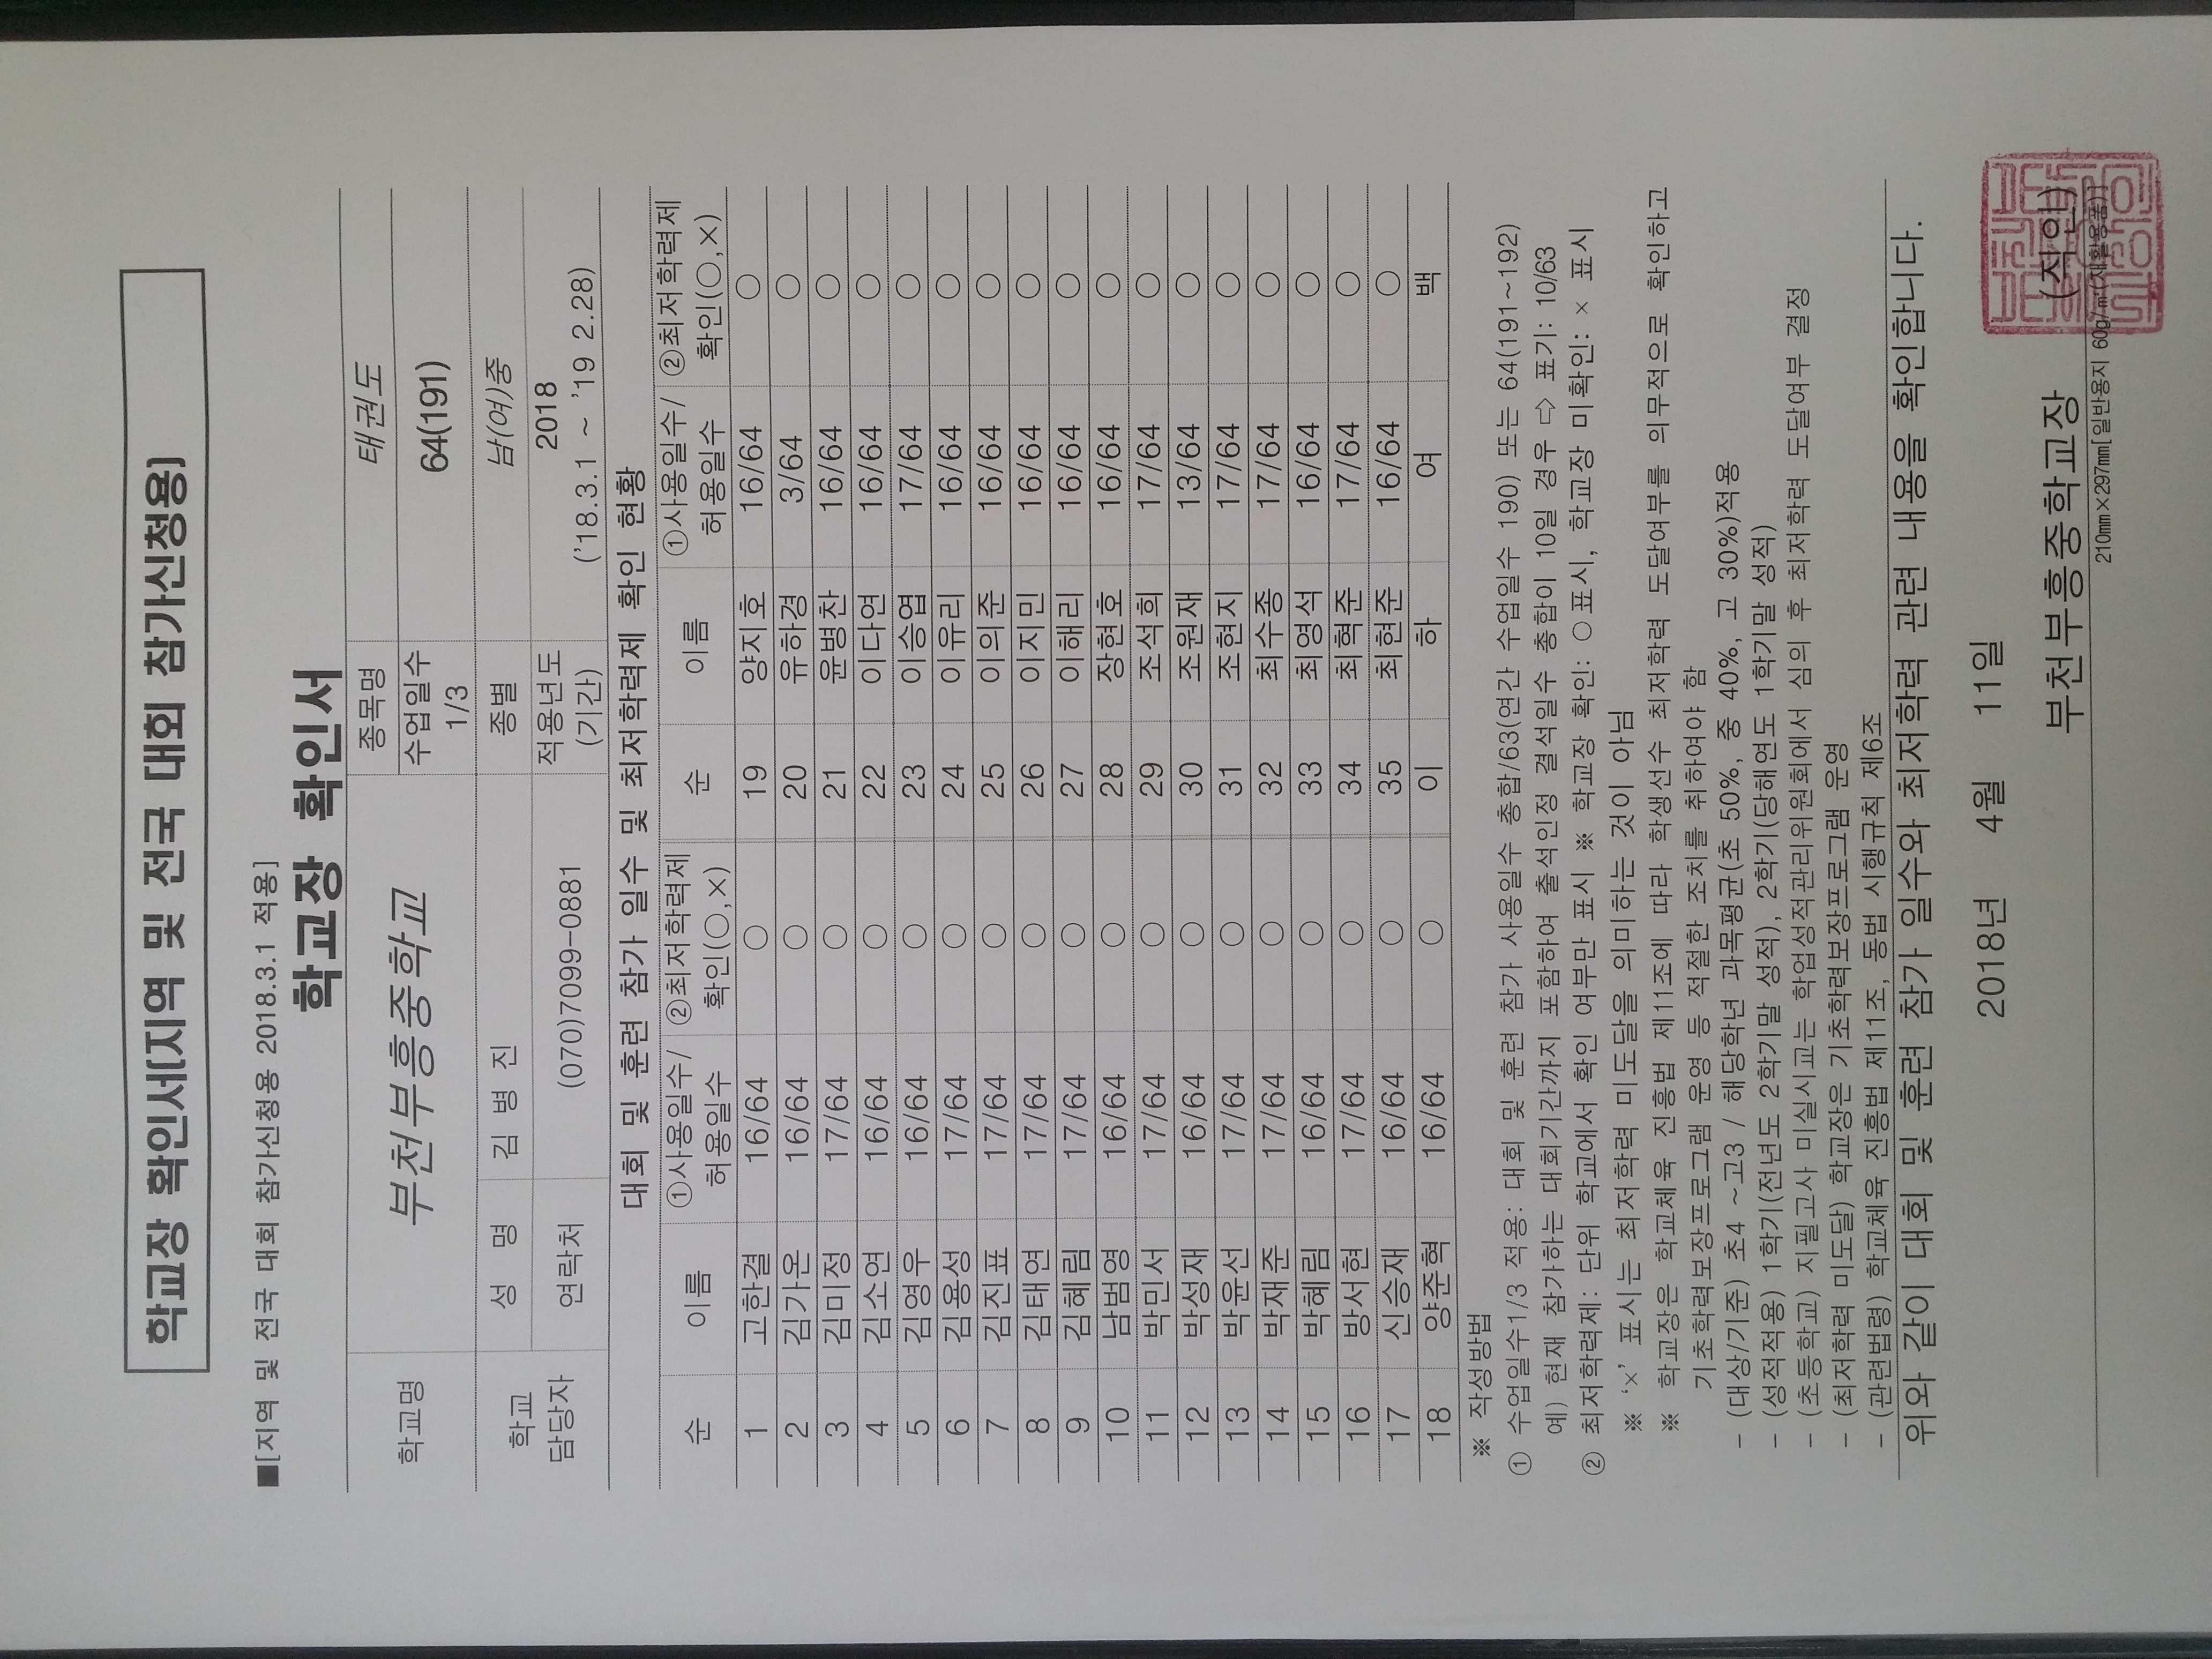 학교장 확인서(지역 및 전국 대회 참가신청용)
■[지역 및 전국 대회 참가신청용 2018.3.1 적용]
학교장 확인서
학교명 부천부흥중학교 종목명 태권도
수업일수 1/3 64(191)
학교 담당자 성 명 김 병 진 종별 남(여)중
연락처 (070)7099-0881 적용년도 (기간) 2018 ('18.3.1 ~ '19 2.28)
대회 및 훈련 참가 일수 및 최저학력제 확인 현황
순 이름 ①사용일수/허용일수 ②최저학력제 확인(○,×) 순 이름 ①사용일수/허용일수 ②최저학력제 확인(○,×)
1 고한결 16/64 ○ 19 양지호 16/64 ○
2 김가온 16/64 ○ 20 유하경 3/64 ○
3 김미정 17/64 ○ 21 윤병찬 16/64 ○
4 김소연 16/64 ○ 22 이다연 16/64 ○
5 김영우 16/64 ○ 23 이승엽 17/64 ○
6 김용성 17/64 ○ 24 이유리 16/64 ○
7 김진표 17/64 ○ 25 이의준 16/64 ○
8 김태연 17/64 ○ 26 이지민 16/64 ○
9 김혜림 17/64 ○ 27 이해리 16/64 ○
10 남범영 16/64 ○ 28 장현호 16/64 ○
11 박민서 17/64 ○ 29 조석희 17/64 ○
12 박성재 16/64 ○ 30 조원재 13/64 ○
13 박윤선 17/64 ○ 31 조현지 17/64 ○
14 박재준 17/64 ○ 32 최수종 17/64 ○
15 박혜림 16/64 ○ 33 최영석 16/64 ○
16 방서현 17/64 ○ 34 최혁준 17/64 ○
17 신승재 16/64 ○ 35 최현준 16/64 ○
18 양준혁 16/64 ○ 이 하 여 백
※ 작성방법
① 수업일수1/3 적용: 대회 및 훈련 참가 사용일수 총합/63(연간 수업일수 190) 또는 64(191~192)
예) 현재 참가하는 대회기간까지 포함하여 출석인정 결석일수 총합이 10일 경우 ⇨ 표기: 10/63
② 최저학력제: 단위 학교에서 확인 여부만 표시 ※ 학교장 확인: ○ 표시, 학교장 미확인: × 표시
※ '×' 표시는 최저학력 미도달을 의미하는 것이 아님
※ 학교장은 학교체육 진흥법 제11조에 따라 학생선수 최저학력 도달여부를 의무적으로 확인하고
기초학력보장프로그램 운영 등 적절한 조치를 취하여야 함
- (대상/기준) 초4 ~고3 / 해당학년 과목평균(초 50%, 중 40%, 고 30%)적용
- (성적적용) 1학기(전년도 2학기말 성적), 2학기(당해연도 1학기말 성적)
- (초등학교) 지필고사 미실시교는 학업성적관리위원회에서 심의 후 최저학력 도달여부 결정
- (최저학력 미도달) 학교장은 기초학력보장프로그램 운영
- (관련법령) 학교체육 진흥법 제11조, 동법 시행규칙 제6조
위와 같이 대회 및 훈련 참가 일수와 최저학력 관련 내용을 확인합니다.
2018년 4월 11일
부천부흥중학교장 (직인)
210㎜×297㎜[일반용지 60g/㎡(재활용품)]